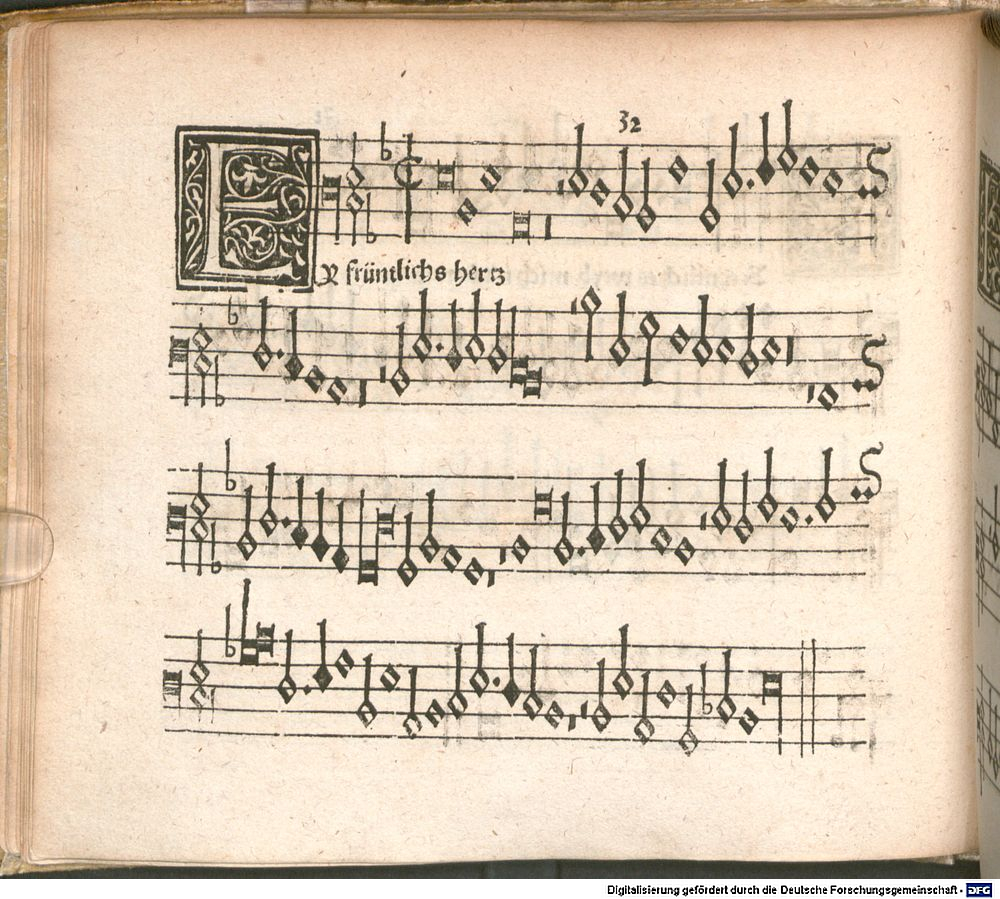 32
EJn früntlichs hertz
Digitalisierung gefördert durch die Deutsche Forschungsgemeinschaft - DFG